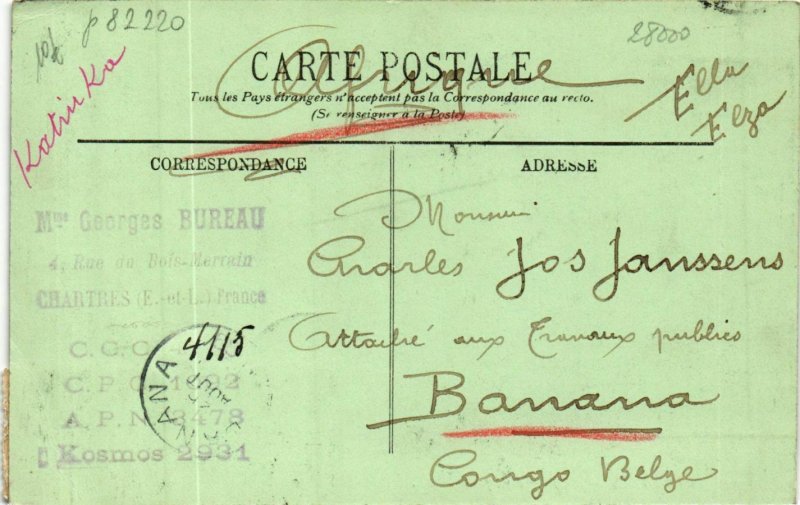 p 82220
28000
Katinka
Ella
Elza
CARTE POSTALE
Afrique
Tous les Pays étrangers n'acceptent pas la Correspondance au recto.
(Se renseigner à la Poste)
CORRESPONDANCE
ADRESSE
Mme Georges BUREAU
4, Rue du Bois-Merrain
CHARTRES (E.-et-L.) France
C.C.C.
C.P.C. 1092
A.P.N. 3478
Kosmos 2931
4/1/5
ANA
AOUT
Monsieur
Charles Jos Janssens
Attaché aux Travaux publics
Banana
Congo Belge